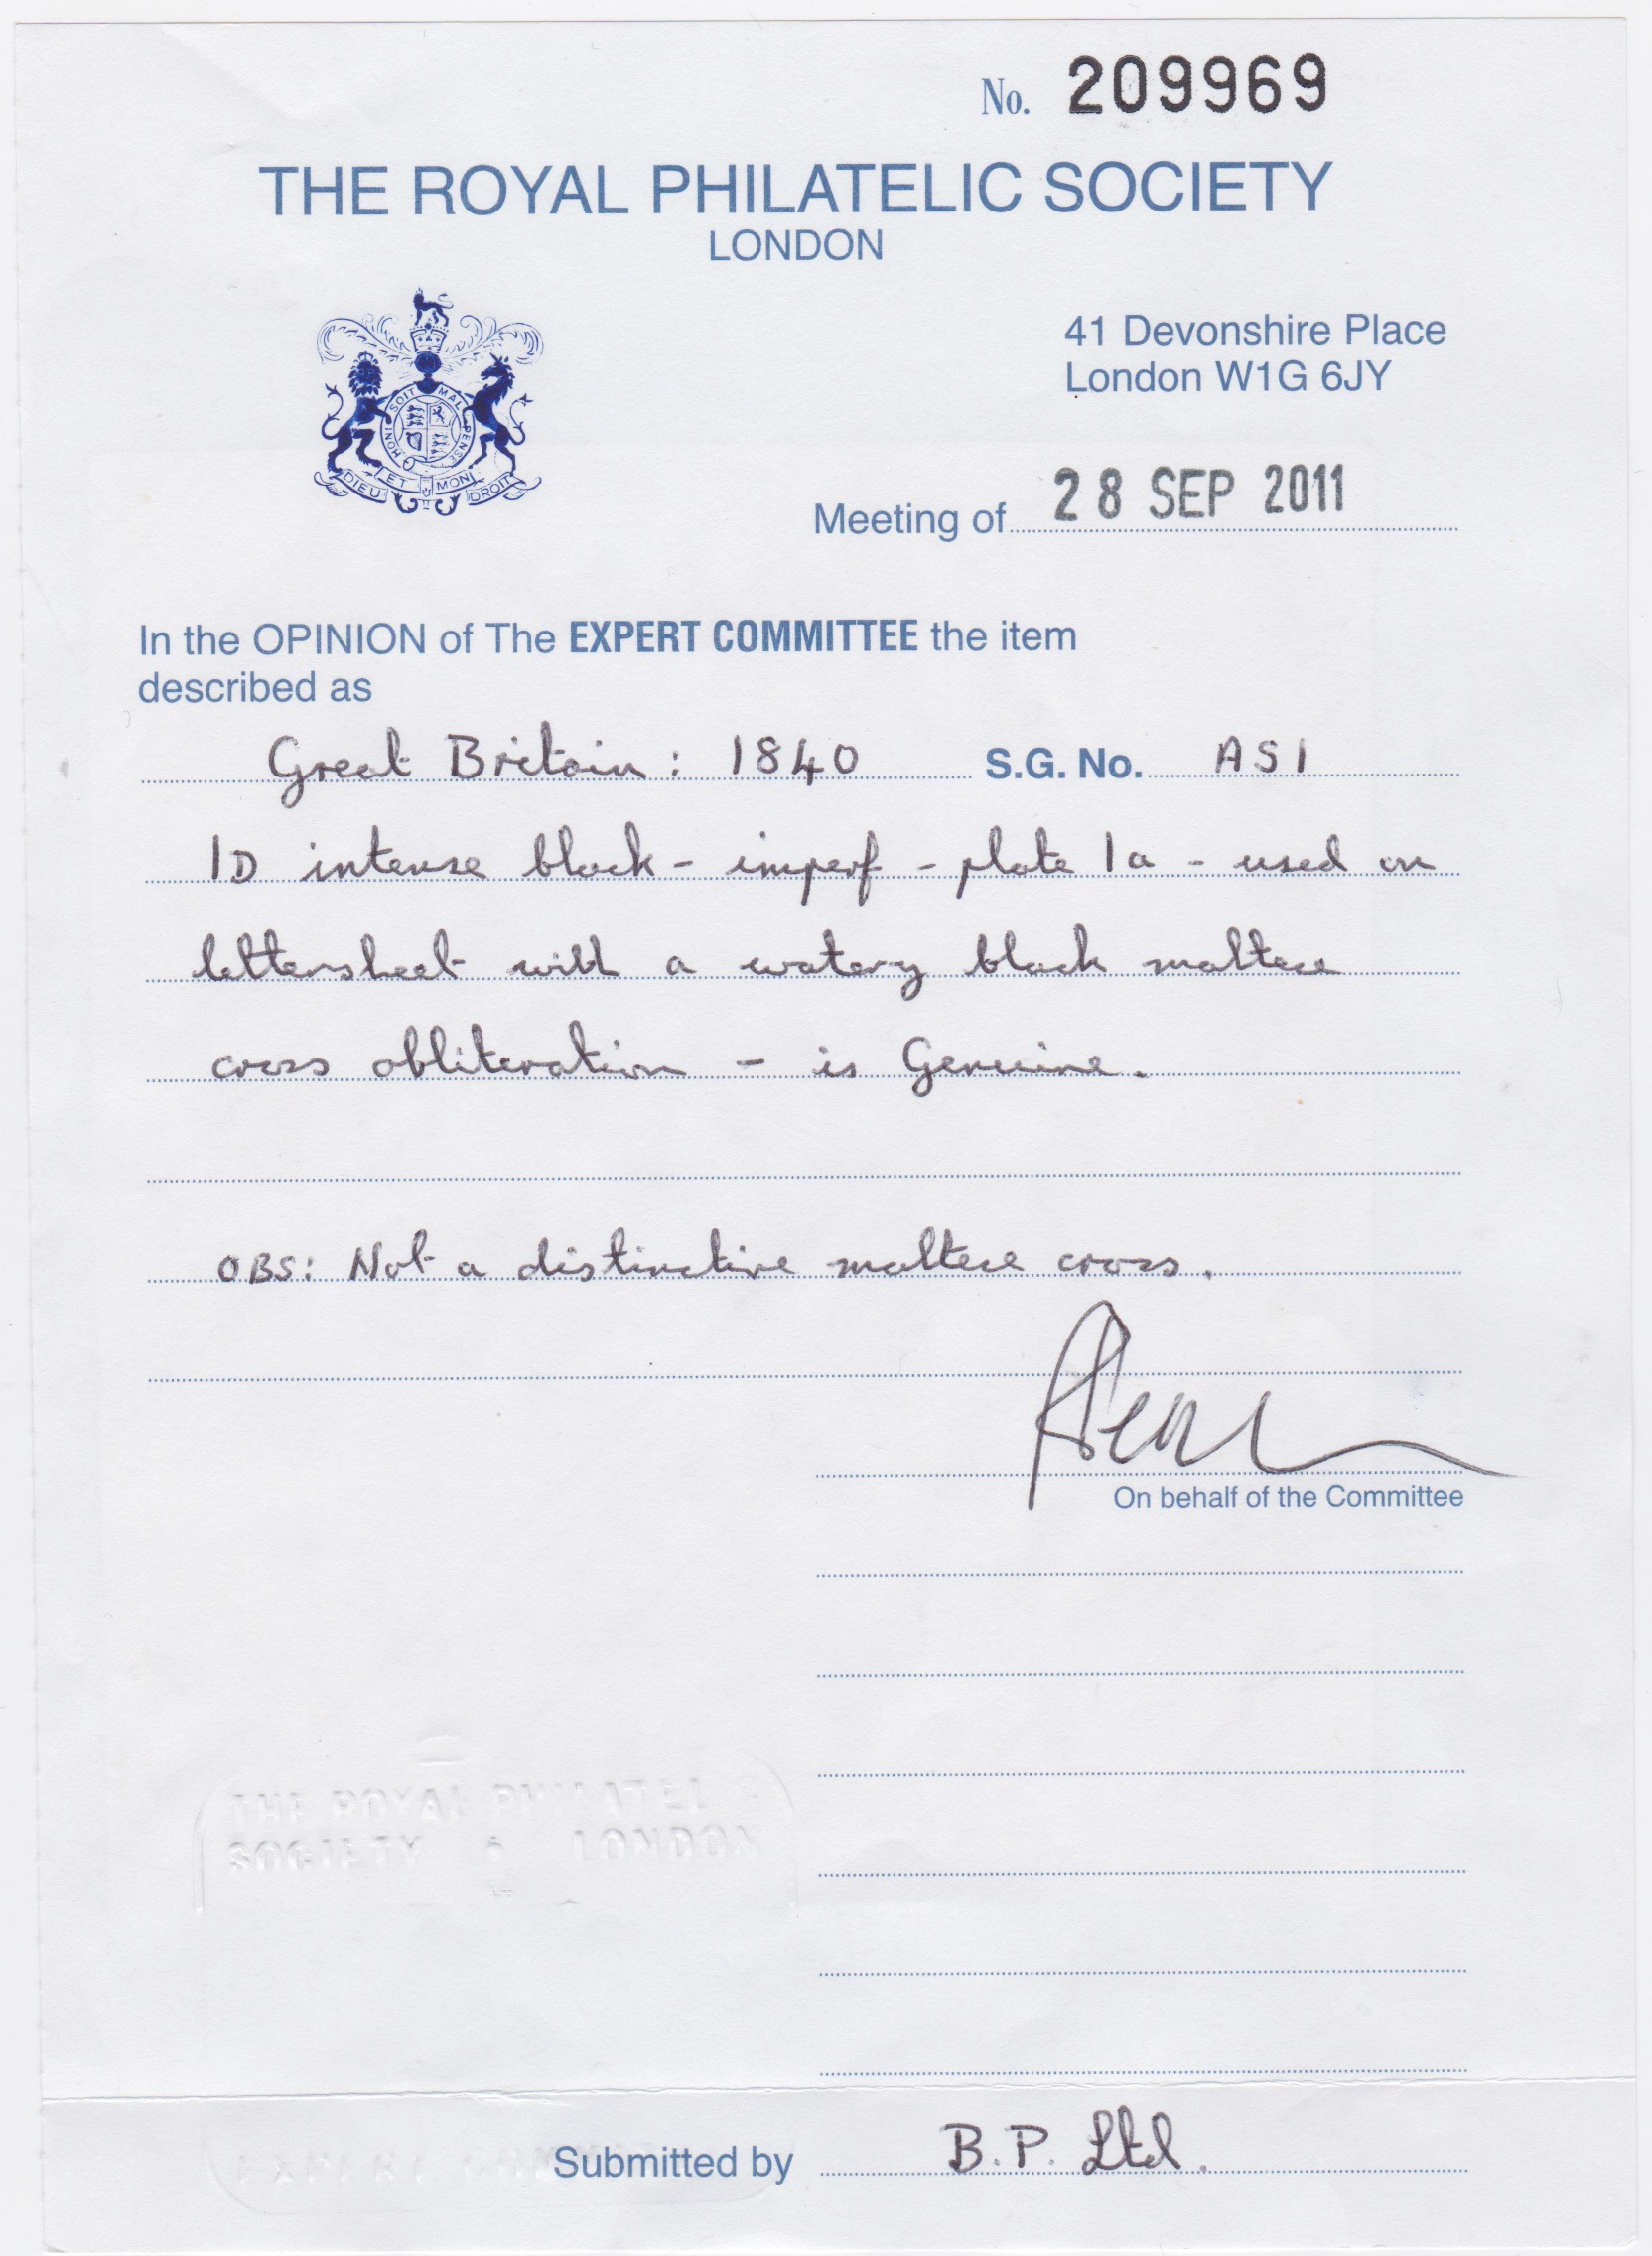 No. 209969
THE ROYAL PHILATELIC SOCIETY
LONDON
HONI SOIT MAL PENSE
DIEU ET MON DROIT
41 Devonshire Place
London W1G 6JY
Meeting of 28 SEP 2011
In the OPINION of The EXPERT COMMITTEE the item
described as
Great Britain: 1840 S.G. No. AS1
1D intense black - imperf - plate 1a - used on
lettersheet with a watery black maltese
cross obliteration - is Genuine.
OBS: Not a distinctive maltese cross.
On behalf of the Committee
THE ROYAL PHILATELIC
SOCIETY LONDON
Submitted by B.P. Ltd.